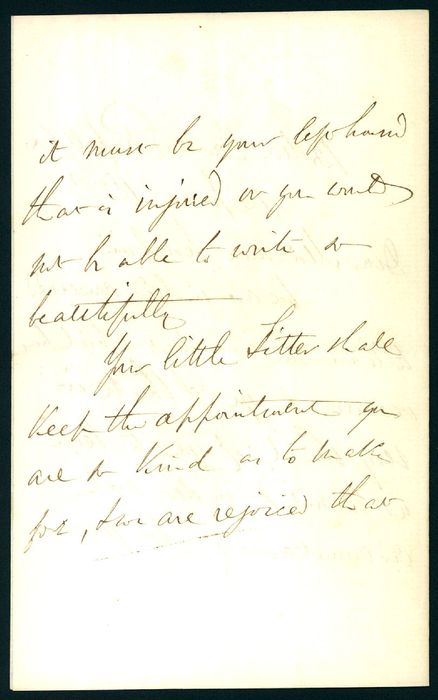 it must be your left hand
that is injured or you would
not be able to write so
beautifully
Your little Sitter shall
keep the appointment you
are so kind as to make
for, & we are rejoiced that